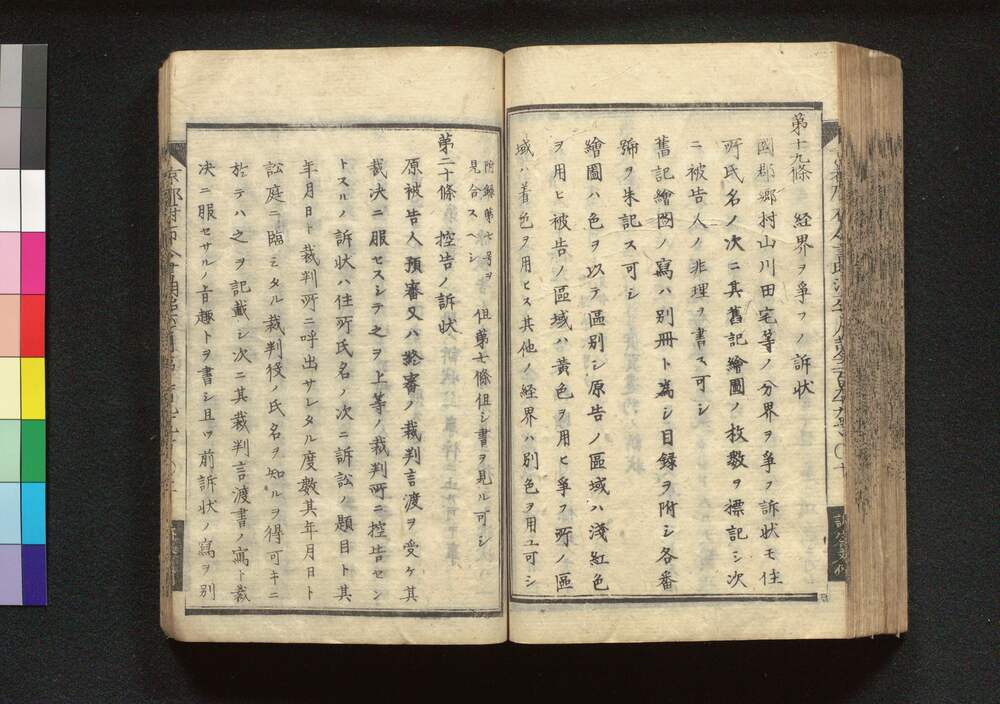 第十九條　經界ヲ爭フノ訴状
國郡鄕村山川田宅等ノ分界ヲ爭フ訴状モ住
所氏名ノ次ニ其舊記繪圖ノ枚數ヲ標記シ次
ニ被告人ノ非理ヲ書ス可シ
舊記繪圖ノ寫ハ別冊ト爲シ目録ヲ附シ各番
號ヲ朱記ス可シ
繪圖ハ色ヲ以テ區別シ原告ノ區域ハ淺紅色
ヲ用ヒ被告ノ區域ハ黄色ヲ用ヒ爭フ所ノ區
域ハ着色ヲ用ヒス其他ノ經界ハ別色ヲ用ユ可シ
附録第七号ヲ見合スヘシ　但第七條但シ書ヲ見ル可シ
第二十條　控告ノ訴状
原被告人預審又ハ終審ノ裁判言渡ヲ受ケ其
裁决ニ服セスシテ之ヲ上等ノ裁判所ニ控告セン
トスルノ訴状ハ住所氏名ノ次ニ訴訟ノ題目ト其
年月日ト裁判所ニ呼出サレタル度數其年月日ト
訟庭ニ臨ミタル裁判役ノ氏名ヲ知ルヲ得可キニ
於テハ之ヲ記載シ次ニ其裁判言渡書ノ寫ト裁
决ニ服セサルノ旨趣トヲ書シ且ツ前訴状ノ寫ヲ別